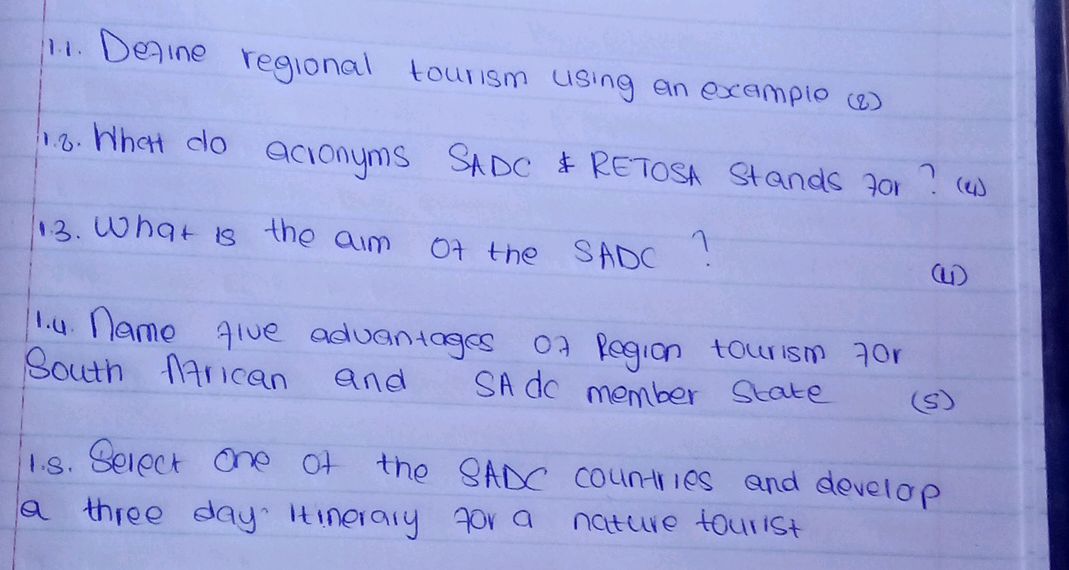 1.1. Define regional tourism using an example (2)
1.2. What do acronyms SADC & RETOSA Stands for ? (4)
1.3. What is the aim of the SADC ? (4)
1.4. Name five advantages of Region tourism for
South African and SAdc member State (5)
1.5. Select one of the SADC countries and develop
a three day itinerary for a nature tourist